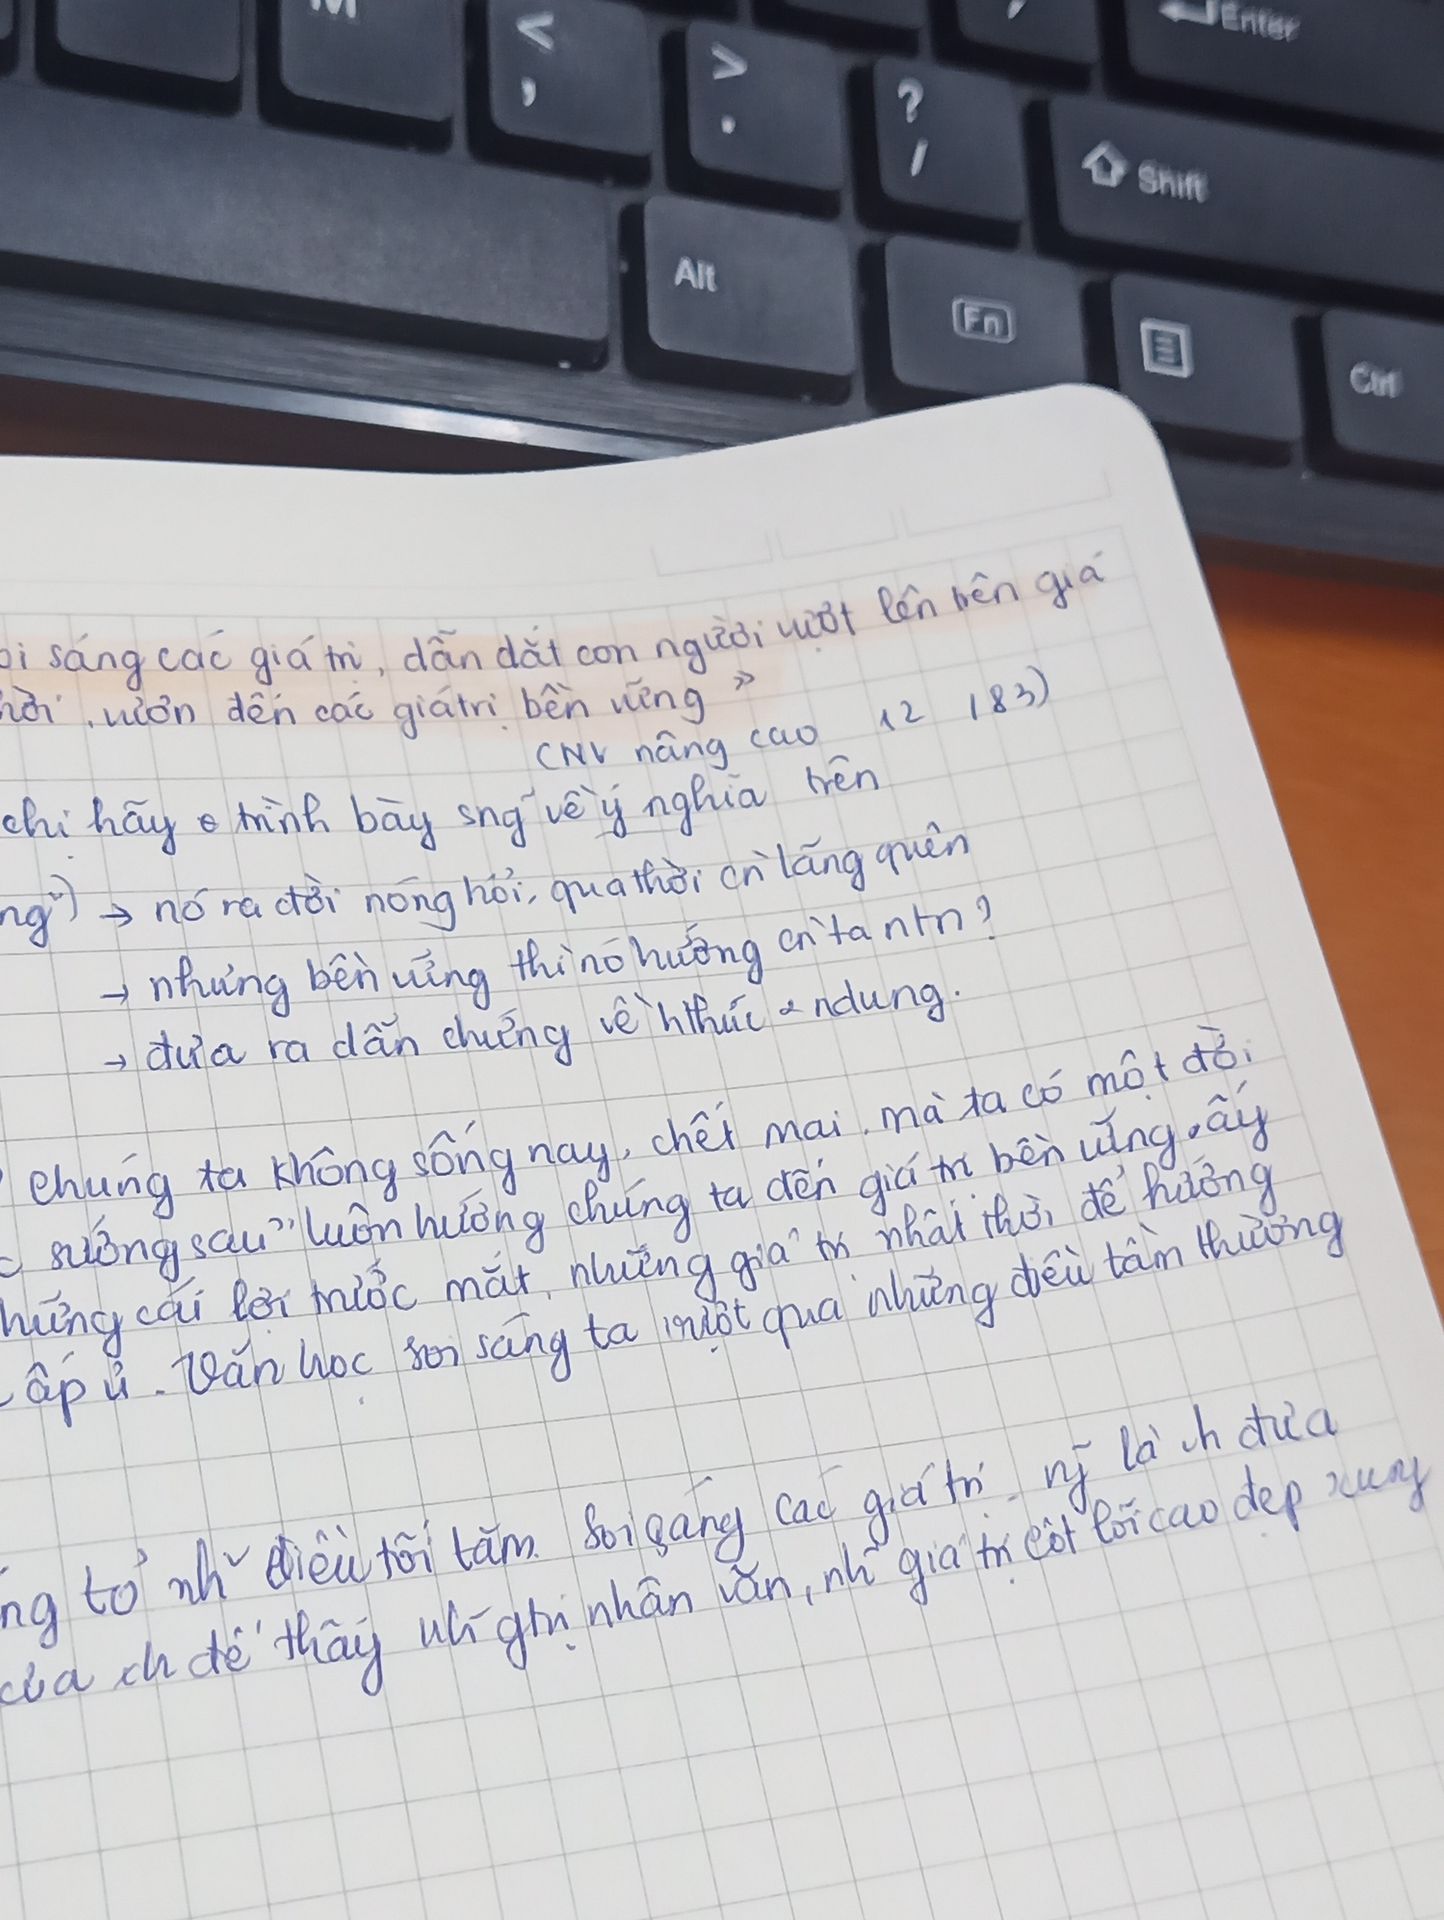 M < , > . ? / Enter
Shift
Alt Fn Ctrl
sáng các giá trị, dẫn dắt con người vượt lên trên giá
vươn đến các giá trị bền vững"
CNV nâng cao 12 183)
chị hãy trình bày sng~ về ý nghĩa trên
→ nó ra đời nóng hổi, qua thời cn` lãng quên
→ nhưng bền vững thì nó hướng cn` ta ntn?
→ đưa ra dẫn chứng về hthức ndung.
chúng ta không sống nay, chết mai. mà ta có một đời
sướng sau" luôn hướng chúng ta đến giá trị bền vững. ấy
cái lợi trước mắt, những giá trị nhất thời để hướng
ấp ủ. Văn học soi sáng ta vượt qua những điều tầm thường
tỏ nh~ điều tối tăm. Soi sáng các giá trị là ch đưa
của ch để thấy nh~ gtrị nhân văn, nh~ giá trị cốt lõi cao đẹp xung